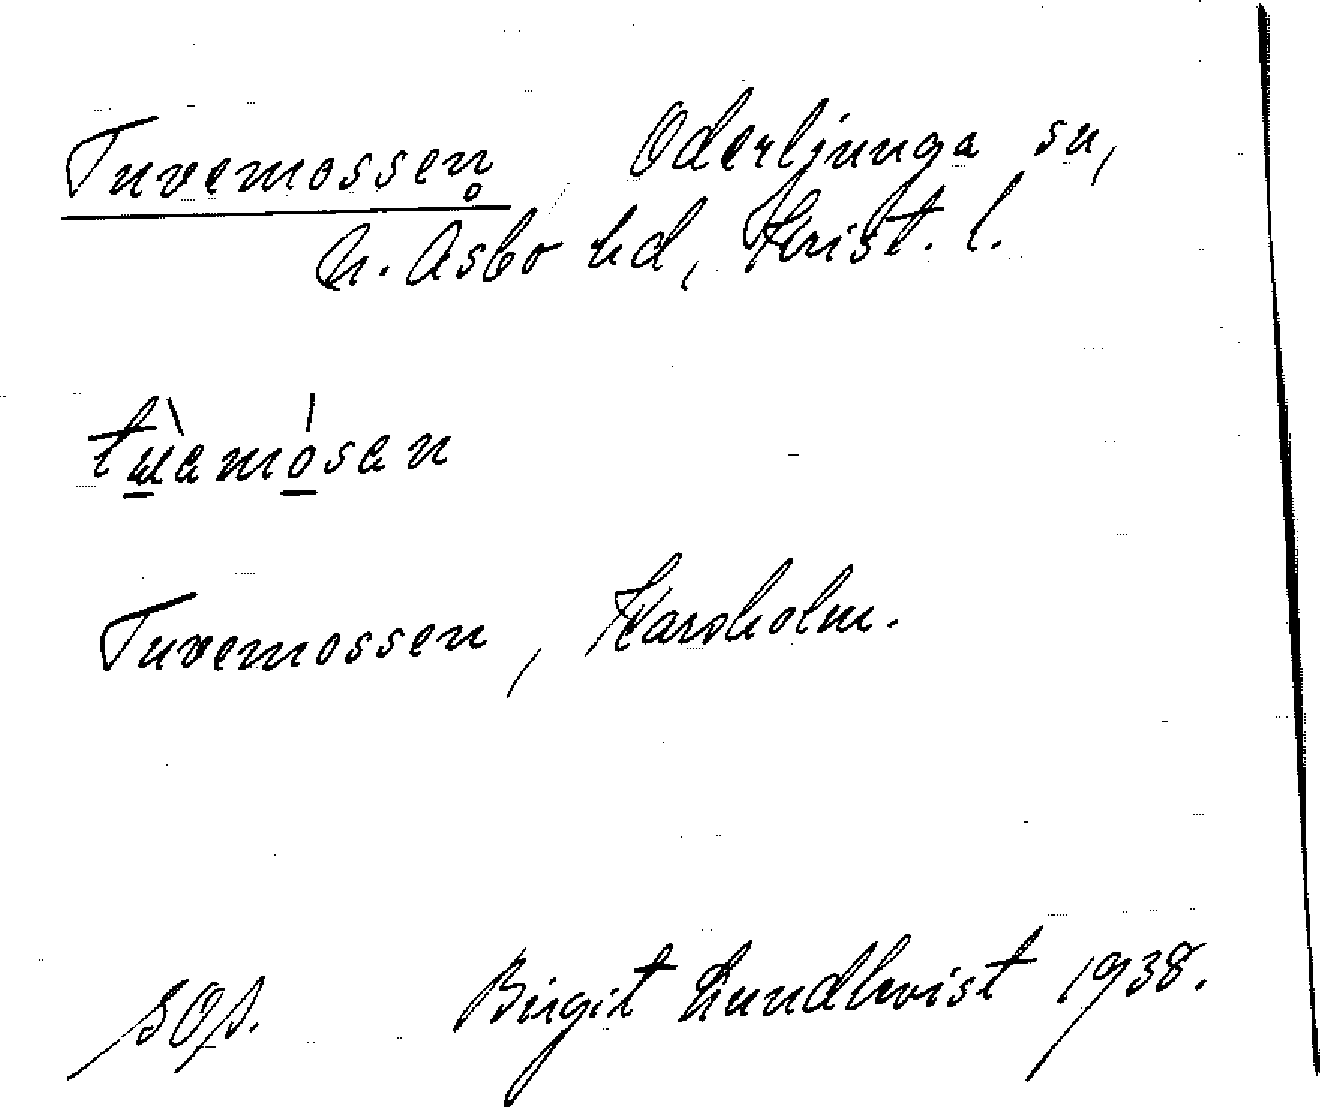 Tuvemossen, Oderljunga sn,
N. Åsbo hd, Krist. l.
tùamósan
Tuvemossen, Karsholm.
Birgit Lundkvist 1938.